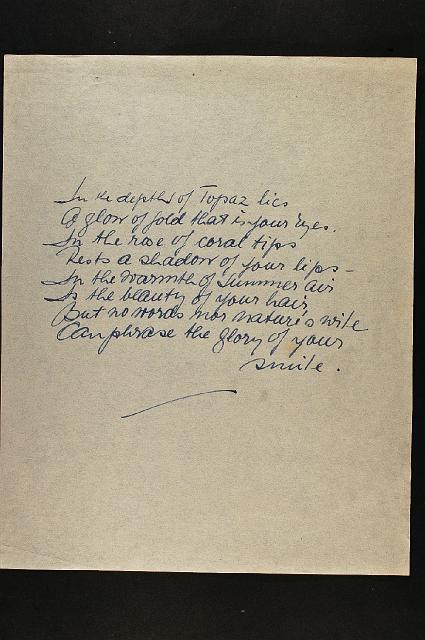 In the depths of Topaz lies
A glow of gold that is your eyes.
In the rose of coral tips
Rests a shadow of your lips –
In the warmth of Summer air
Is the beauty of your hair
But no words nor nature's wile
Can phrase the glory of your
smile.